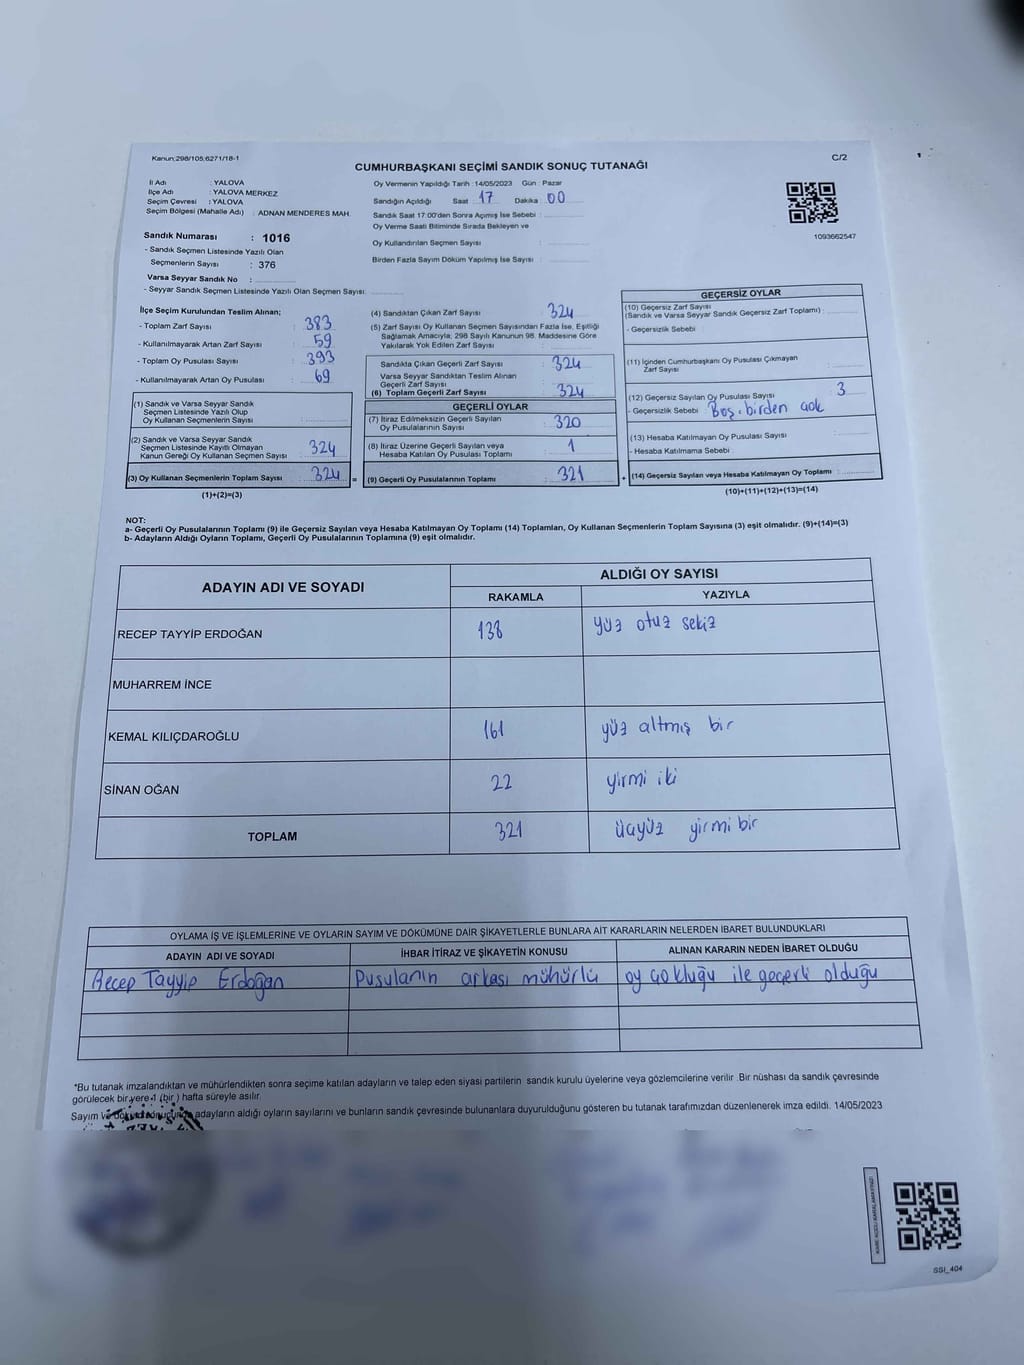 Kanun:298/105,6271/18-1
C/2
CUMHURBAŞKANI SEÇİMİ SANDIK SONUÇ TUTANAĞI
İl Adı : YALOVA
İlçe Adı : YALOVA MERKEZ
Seçim Çevresi : YALOVA
Seçim Bölgesi (Mahalle Adı) : ADNAN MENDERES MAH.
Sandık Numarası : 1016
- Sandık Seçmen Listesinde Yazılı Olan
Seçmenlerin Sayısı : 376
Varsa Seyyar Sandık No :
- Seyyar Sandık Seçmen Listesinde Yazılı Olan Seçmen Sayısı:
Oy Vermenin Yapıldığı Tarih :14/05/2023 Gün : Pazar
Sandığın Açıldığı Saat 17 Dakika 00
Sandık Saat 17:00'den Sonra Açımış İse Sebebi :
Oy Verme Saati Bitiminde Sırada Bekleyen ve
Oy Kullandırılan Seçmen Sayısı :
Birden Fazla Sayım Döküm Yapılmış İse Sayısı :
1093662547
İlçe Seçim Kurulundan Teslim Alınan;
- Toplam Zarf Sayısı : 383
- Kullanılmayarak Artan Zarf Sayısı : 59
- Toplam Oy Pusulası Sayısı : 393
- Kullanılmayarak Artan Oy Pusulası : 69
(1) Sandık ve Varsa Seyyar Sandık
Seçmen Listesinde Yazılı Olup
Oy Kullanan Seçmenlerin Sayısı :
(2) Sandık ve Varsa Seyyar Sandık
Seçmen Listesinde Kayıtlı Olmayan
Kanun Gereği Oy Kullanan Seçmen Sayısı : 324
(3) Oy Kullanan Seçmenlerin Toplam Sayısı : 324
(1)+(2)=(3)
(4) Sandıktan Çıkan Zarf Sayısı : 324
(5) Zarf Sayısı Oy Kullanan Seçmen Sayısından Fazla İse, Eşitliği
Sağlamak Amacıyla; 298 Sayılı Kanunun 98. Maddesine Göre
Yakılarak Yok Edilen Zarf Sayısı :
Sandıkta Çıkan Geçerli Zarf Sayısı : 324
Varsa Seyyar Sandıktan Teslim Alınan
Geçerli Zarf Sayısı
(6) Toplam Geçerli Zarf Sayısı : 324
GEÇERLİ OYLAR
(7) İtiraz Edilmeksizin Geçerli Sayılan
Oy Pusulalarının Sayısı : 320
(8) İtiraz Üzerine Geçerli Sayılan veya
Hesaba Katılan Oy Pusulası Toplamı : 1
= (9) Geçerli Oy Pusulalarının Toplamı : 321
GEÇERSİZ OYLAR
(10) Geçersiz Zarf Sayısı
(Sandık ve Varsa Seyyar Sandık Geçersiz Zarf Toplamı) :
- Geçersizlik Sebebi :
(11) İçinden Cumhurbaşkanı Oy Pusulası Çıkmayan
Zarf Sayısı :
(12) Geçersiz Sayılan Oy Pusulası Sayısı : 3
- Geçersizlik Sebebi : Boş. birden çok
(13) Hesaba Katılmayan Oy Pusulası Sayısı :
- Hesaba Katılmama Sebebi :
+ (14) Geçersiz Sayılan veya Hesaba Katılmayan Oy Toplamı :
(10)+(11)+(12)+(13)=(14)
NOT:
a- Geçerli Oy Pusulalarının Toplamı (9) ile Geçersiz Sayılan veya Hesaba Katılmayan Oy Toplamı (14) Toplamları, Oy Kullanan Seçmenlerin Toplam Sayısına (3) eşit olmalıdır. (9)+(14)=(3)
b- Adayların Aldığı Oyların Toplamı, Geçerli Oy Pusulalarının Toplamına (9) eşit olmalıdır.
ADAYIN ADI VE SOYADI ALDIĞI OY SAYISI
RAKAMLA YAZIYLA
RECEP TAYYİP ERDOĞAN 138 yüz otuz sekiz
MUHARREM İNCE
KEMAL KILIÇDAROĞLU 161 yüz altmış bir
SİNAN OĞAN 22 yirmi iki
TOPLAM 321 üçyüz yirmi bir
OYLAMA İŞ VE İŞLEMLERİNE VE OYLARIN SAYIM VE DÖKÜMÜNE DAİR ŞİKAYETLERLE BUNLARA AİT KARARLARIN NELERDEN İBARET BULUNDUKLARI
ADAYIN ADI VE SOYADI İHBAR İTİRAZ VE ŞİKAYETİN KONUSU ALINAN KARARIN NEDEN İBARET OLDUĞU
Recep Tayyip Erdoğan Pusulanın arkası mühürlü oy çokluğu ile geçerli olduğu
*Bu tutanak imzalandıktan ve mühürlendikten sonra seçime katılan adayların ve talep eden siyasi partilerin sandık kurulu üyelerine veya gözlemcilerine verilir .Bir nüshası da sandık çevresinde
görülecek bir yere 1 (bir ) hafta süreyle asılır.
Sayım ve döküm sonucunda adayların aldığı oyların sayılarını ve bunların sandık çevresinde bulunanlara duyurulduğunu gösteren bu tutanak tarafımızdan düzenlenerek imza edildi. 14/05/2023
SSİ_404